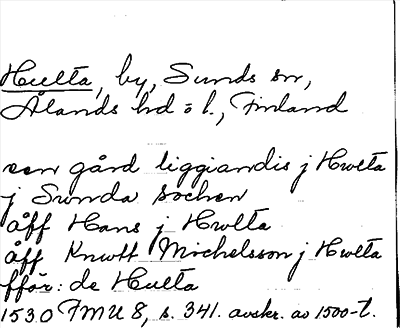 Hulta, by, Sunds sn,
Ålands hd o l., Finland
een gård liggiandis j Hwlta
j Sunda sochen
åff Hans j Hwlta
åff Knutt Michelsson j Hwlta
fför: de Hulta
1530 FMU 8, s. 341. avskr. av 1500-t.